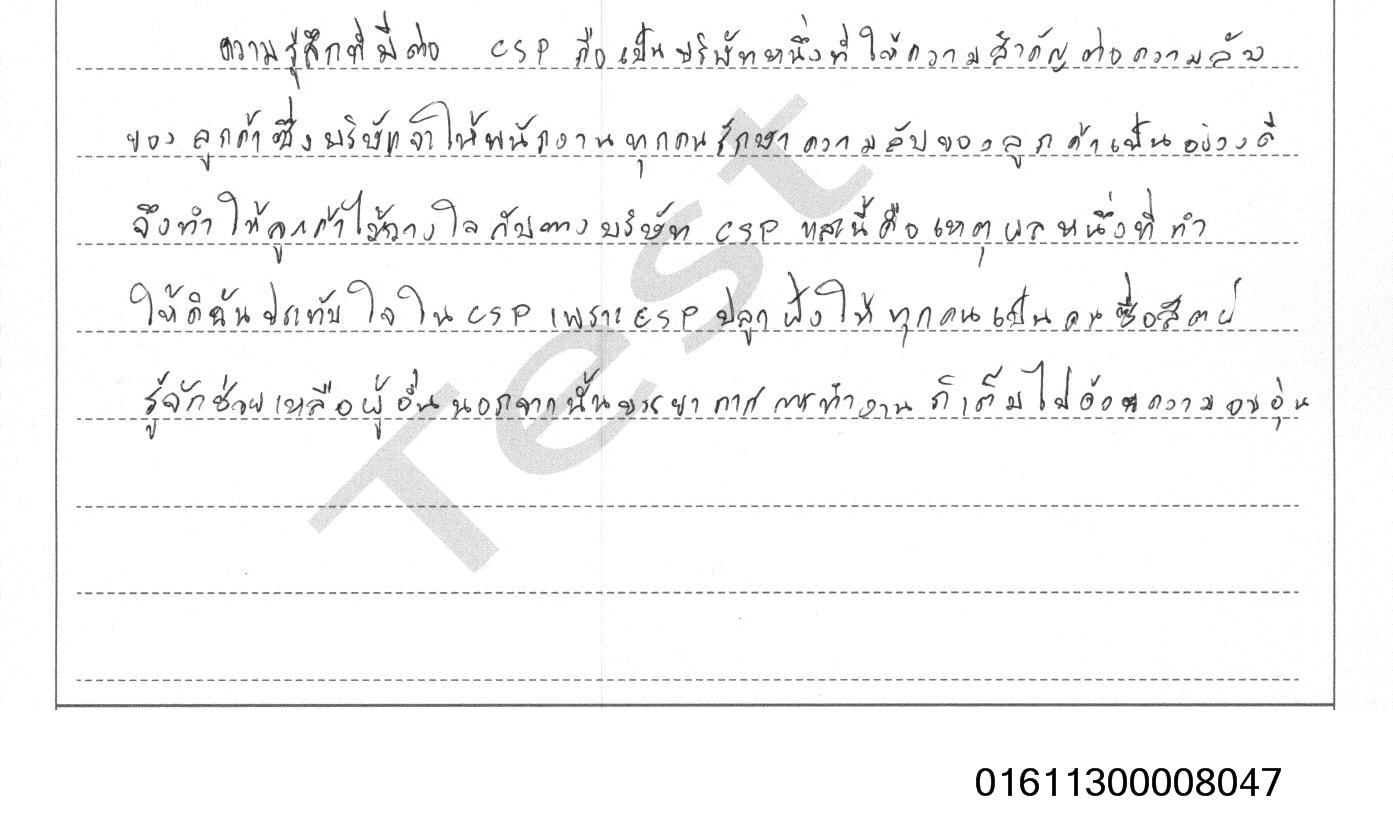 ความรู้สึกที่มีต่อ CSP คือ เป็นบริษัทหนึ่งที่ให้ความสำคัญต่อความลับ
ของลูกค้าซึ่งบริษัทจำให้พนักงานทุกคนรักษาความลับของลูกค้าเป็นอย่างดี
จึงทำให้ลูกค้าไว้วางใจกับทางบริษัท CSP และนี้คือเหตุผลหนึ่งที่ทำ
ให้ดิฉันประทับใจใน CSP เพราะ CSP ปลูกฝังให้ทุกคนเป็นคนซื่อสัตย์
รู้จักช่วยเหลือผู้อื่นนอกจากนั้นบรรยากาศการทำงานก็เต็มไปด้วยความอบอุ่น
Test
01611300008047